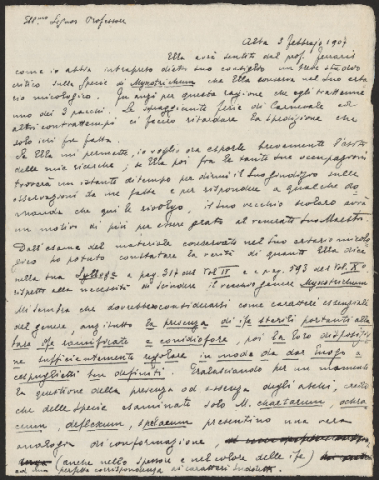 Ill.mo Signor Professore
Alba 3 Febbraio 1907
Ella avrà sentito dal prof. Ferraris
come io abbia intrapreso dietro suo consiglio un breve studio
critico sulle specie di Myxotrichum che Ella conserva nel suo erba
rio micologico. Fu anzi per questa ragione che egli trattenne
uno dei 3 pacchi. Le sopraggiunte ferie di Carnevale ed
altri contrattempi ci fecero ritardare la spedizione che
solo ieri fu fatta.
Se Ella mi permette, io voglio ora esporle brevemente l'esito
delle mie ricerche; se Ella poi fra le tante sue occupazioni
troverà un istante di tempo per dirmi il Suo giudizio sulle
osservazioni da me fatte e per rispondere a qualche do
manda che qui le rivolgo, il suo vecchio scolaro avrà
un motivo di più per essere grato al venerato Suo Maestro.
Dall'esame del materiale conservato nel Suo erbario micolo
gico ho potuto constatare la verità di quanto Ella dice
nella sua Sylloge a pag. 317 del Vol IV e a pag. 593 del Vol. X°
rispetto alla necessità di scindere il vecchio genere Myxotrichum
Mi sembra che dovrebbero considerarsi come caratteri essenziali
del genere, anzitutto la presenza di ife sterili portanti alla
base ife ramificate e conidiofore, poi la loro disposizio
ne sufficientemente regolare in modo da dar luogo a
cespuglietti ben definiti. Tralasciando per un momento
la questione della presenza od assenza degli aschi, credo
che delle specie esaminate solo M. chartarum, ochra
ceum, deflexum, spelaeum presentino una vera
analogia di conformazione,
(anche nello spessore e nel colore delle ife)
ed una perfetta corrispondenza ai caratteri suddetti.